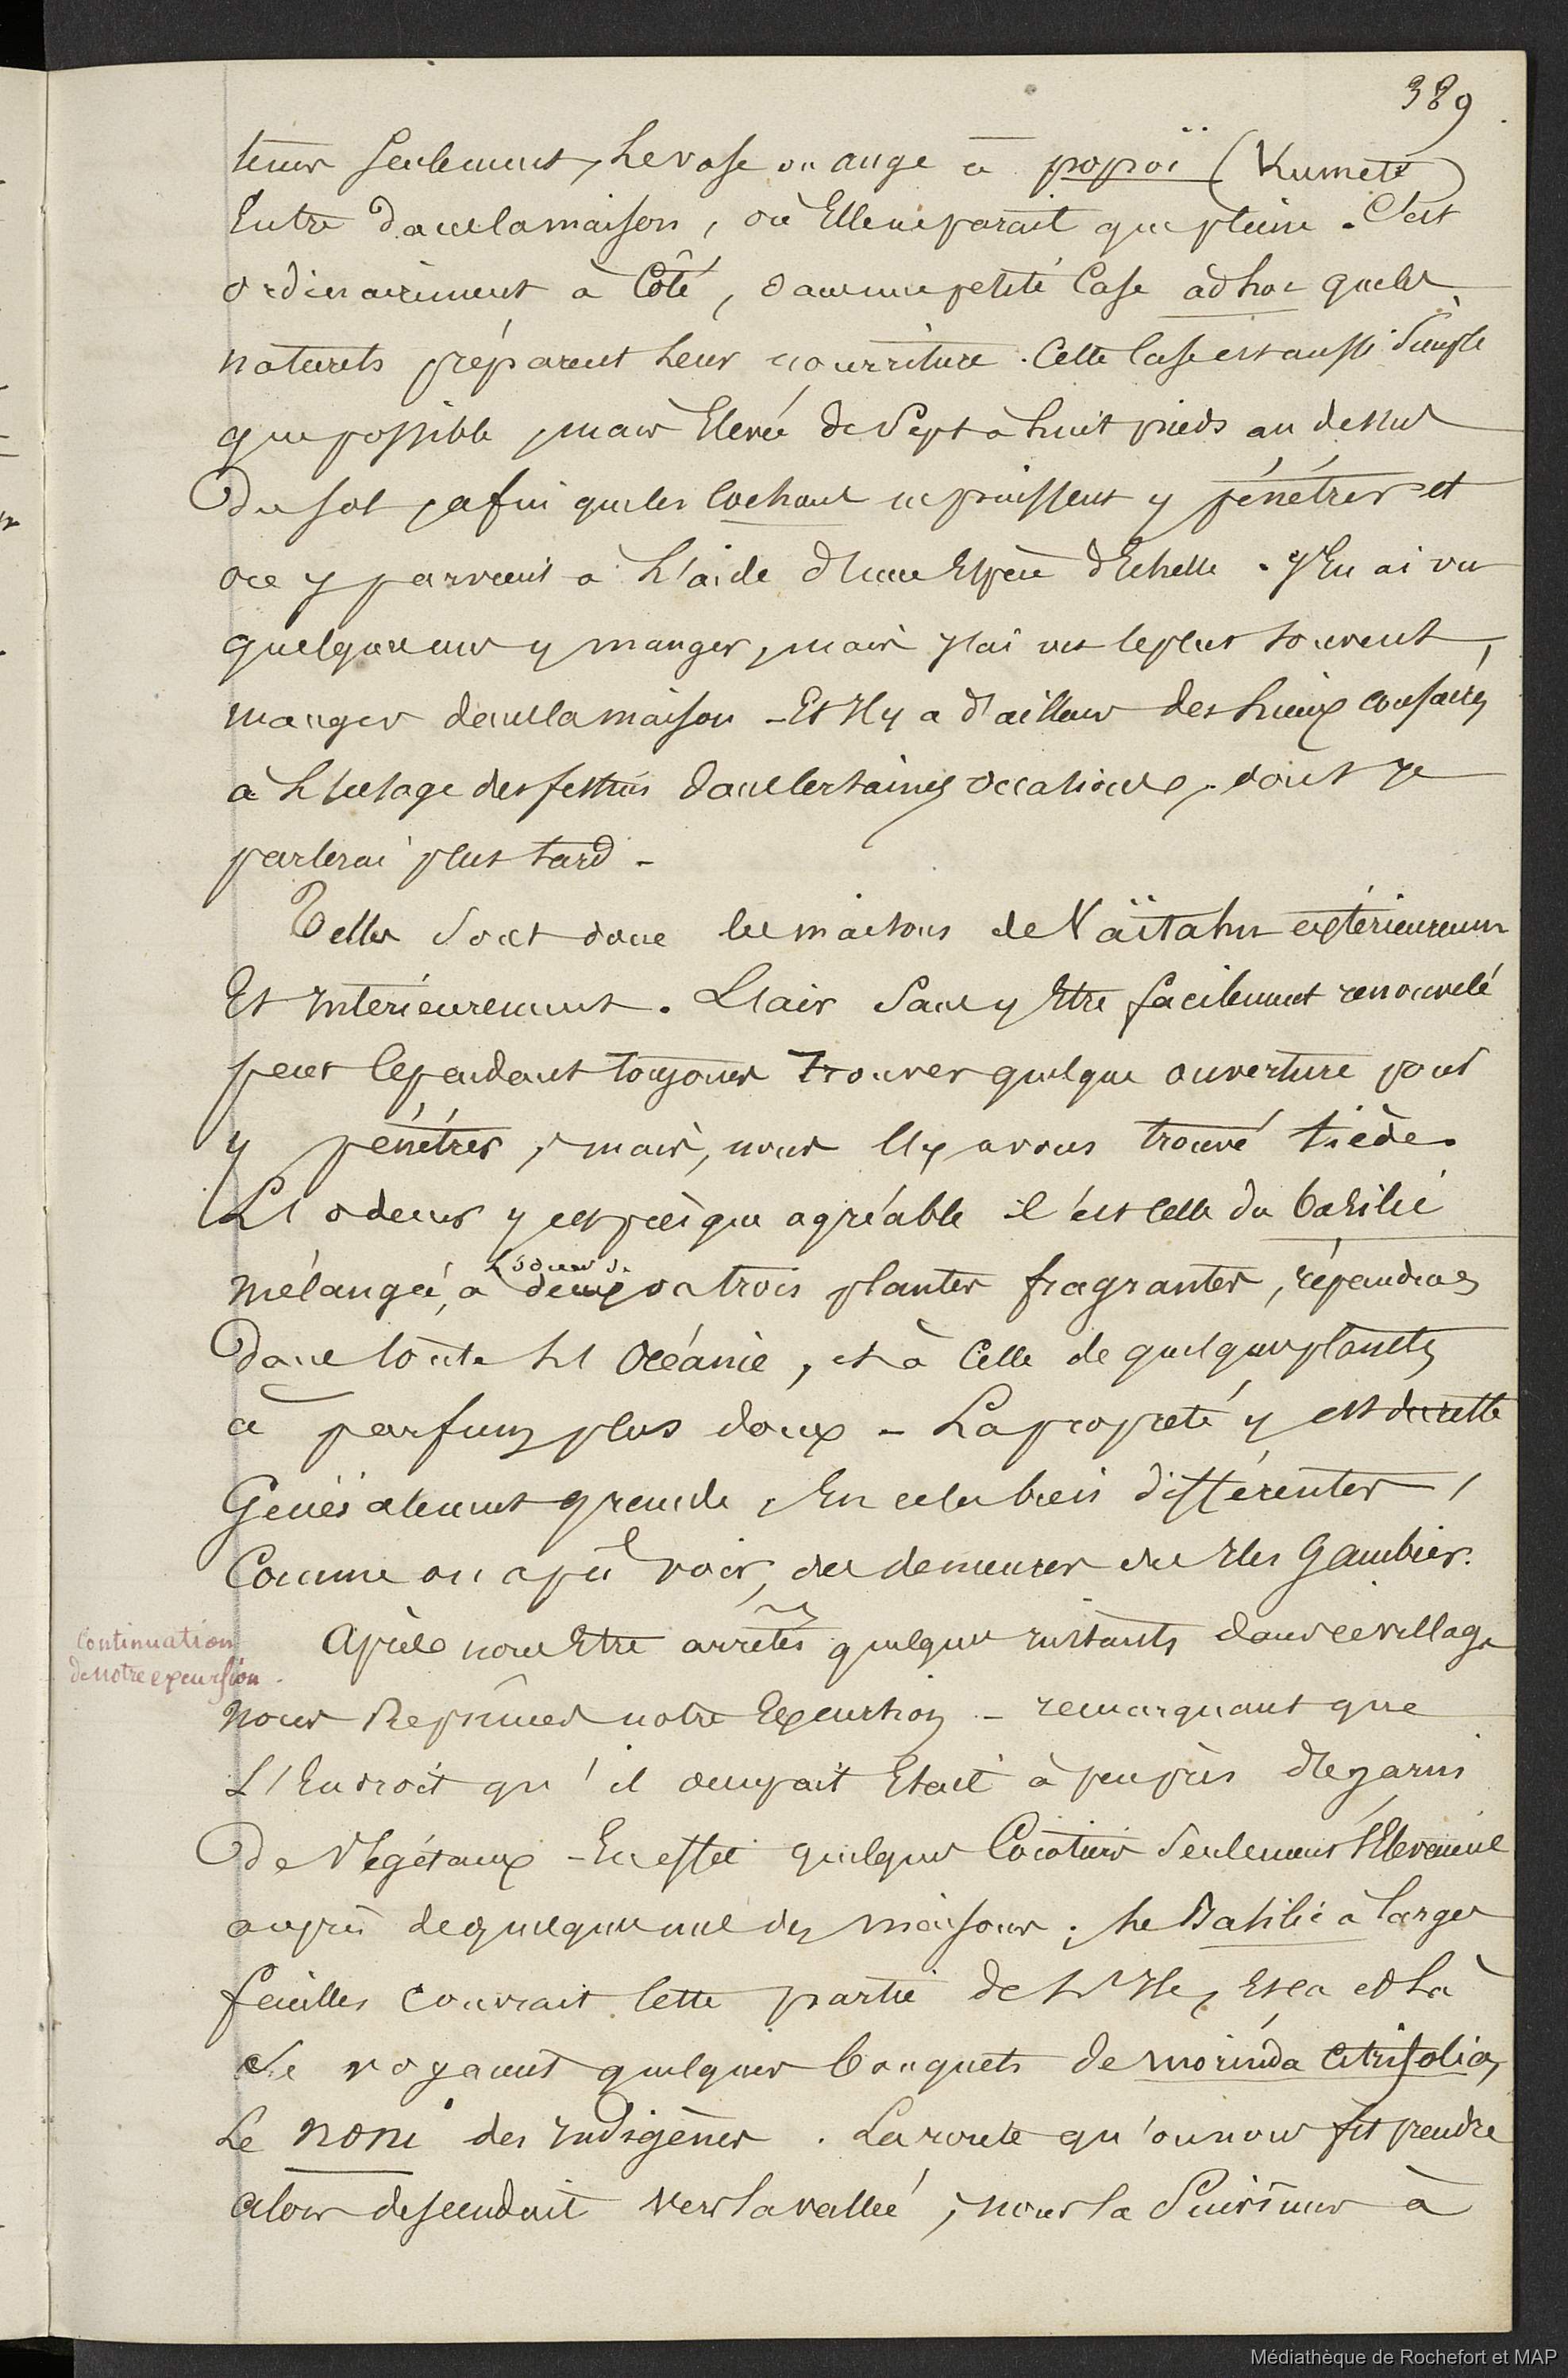 389
tenir seulement, Le vase ou auge à popoï (Kumete)
Entre dans la maison, où Elle ne parait que pleine. C'est
ordinairement à Côté, dans une petite Case ad hoc que les
naturels préparent leur nourriture. Cette Case est aussi simple
que possible, mais Elevée de Sept à huit pieds au dessus
Du sol, afin que les cochons ne puissent y pénétrer et
on y parvient à L'aide d'une Espèce d'Echelle. J'En ai vu
quelques uns y manger, mais j'ai vu le plus souvent,
manger dans la maison - Et Il y a d'ailleurs des Lieux consacrés
à L'usage des festins dans Certaines occasions, dont je
parlerai plus tard -
Telles sont donc les maisons de Vaïtahu extérieurement
Et Intérieurement. L'air sans y Etre facilement renouvelé
peut Cependant toujours trouver quelque ouverture pour
y pénétrer, mais, nous L'y avons trouvé tiède.
L'odeur y est presque agréable c'est Celle du Basilic
mélangée, à L'odeur de deux ou trois plantes fragrantes, répandues
Dans toute L'Océanie, et à Celle de quelques plantes
à parfum plus doux - La propreté y est
Généralement grande, En cela bien différentes,
Comme on a pu voir, des demeures des Iles Gambier.
Continuation
de notre excursion.
Après nous Etre arrêtés quelques instants dans ce village
nous Reprîmes notre Excursion - remarquant que
L'Endroit qu'il occupait Etait à peu près dégarni
De Végétaux - En effet quelques Cocotiers seulement s'Elevaient
auprès de quelques unes des maisons; Le Basilic à larges
feuilles couvrait Cette partie de L'Ile, Et ca et Là
se voyaient quelques bouquets de morinda citrifolia,
Le noni des Indigènes. La route qu'on nous fit prendre
alors descendait vers la vallée, nous la Suivîmes à
Médiathèque de Rochefort et MAP